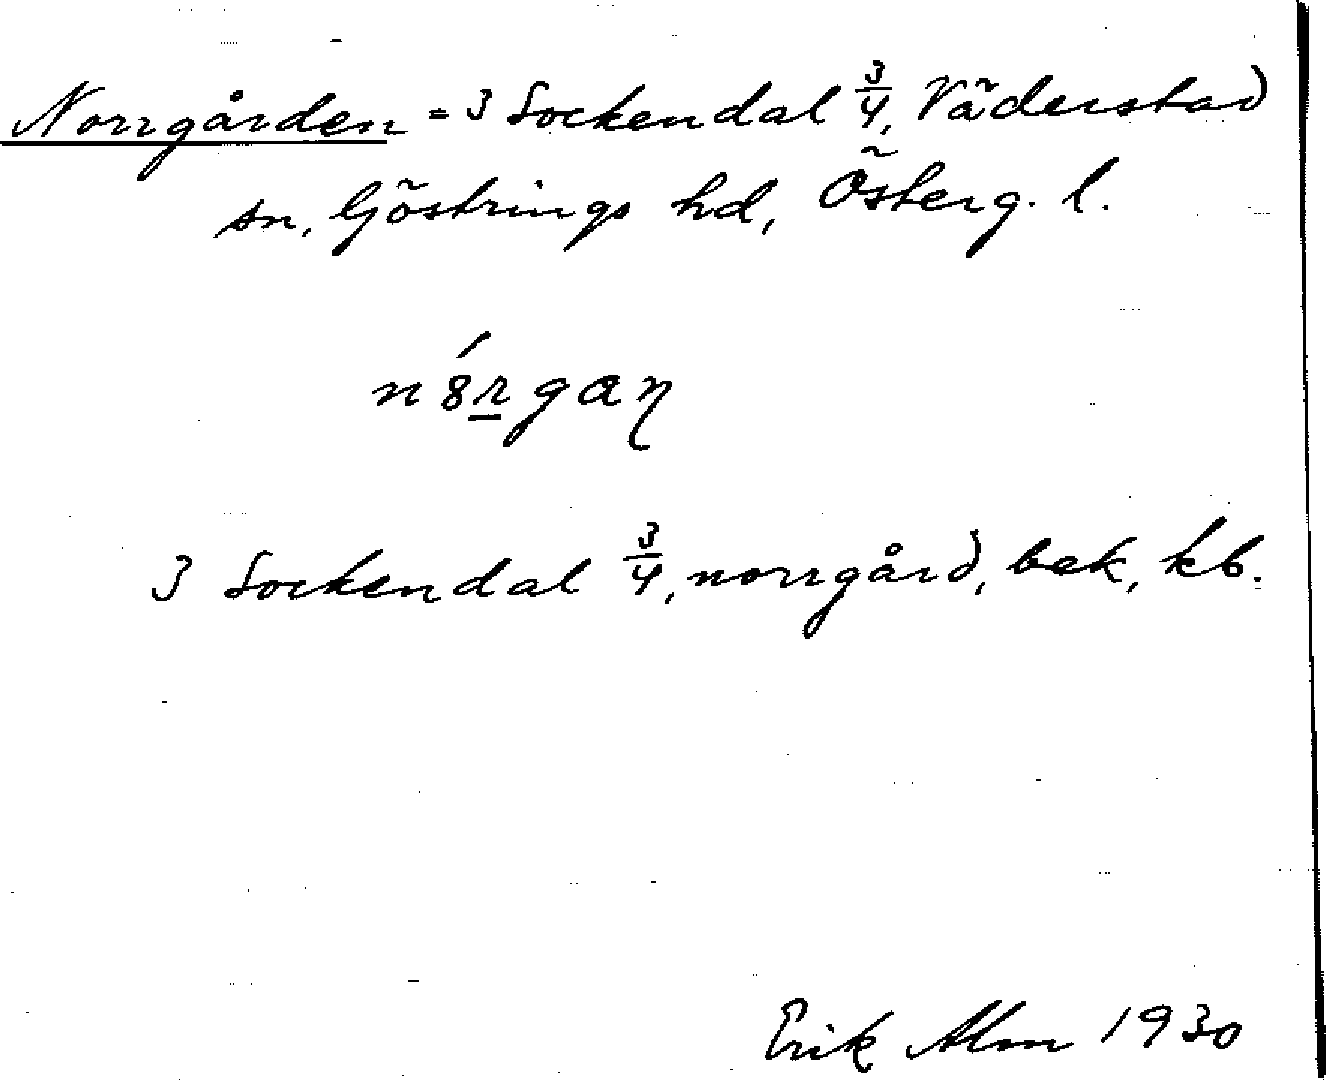 Norrgården = 3 Sockendal 3/4, Väderstad
sn, Göstrings hd, Österg. l.
nȣ́r̲gaɳ
3 Sockendal 3/4, norrgård, bek, kb.
Erik Alm 1930